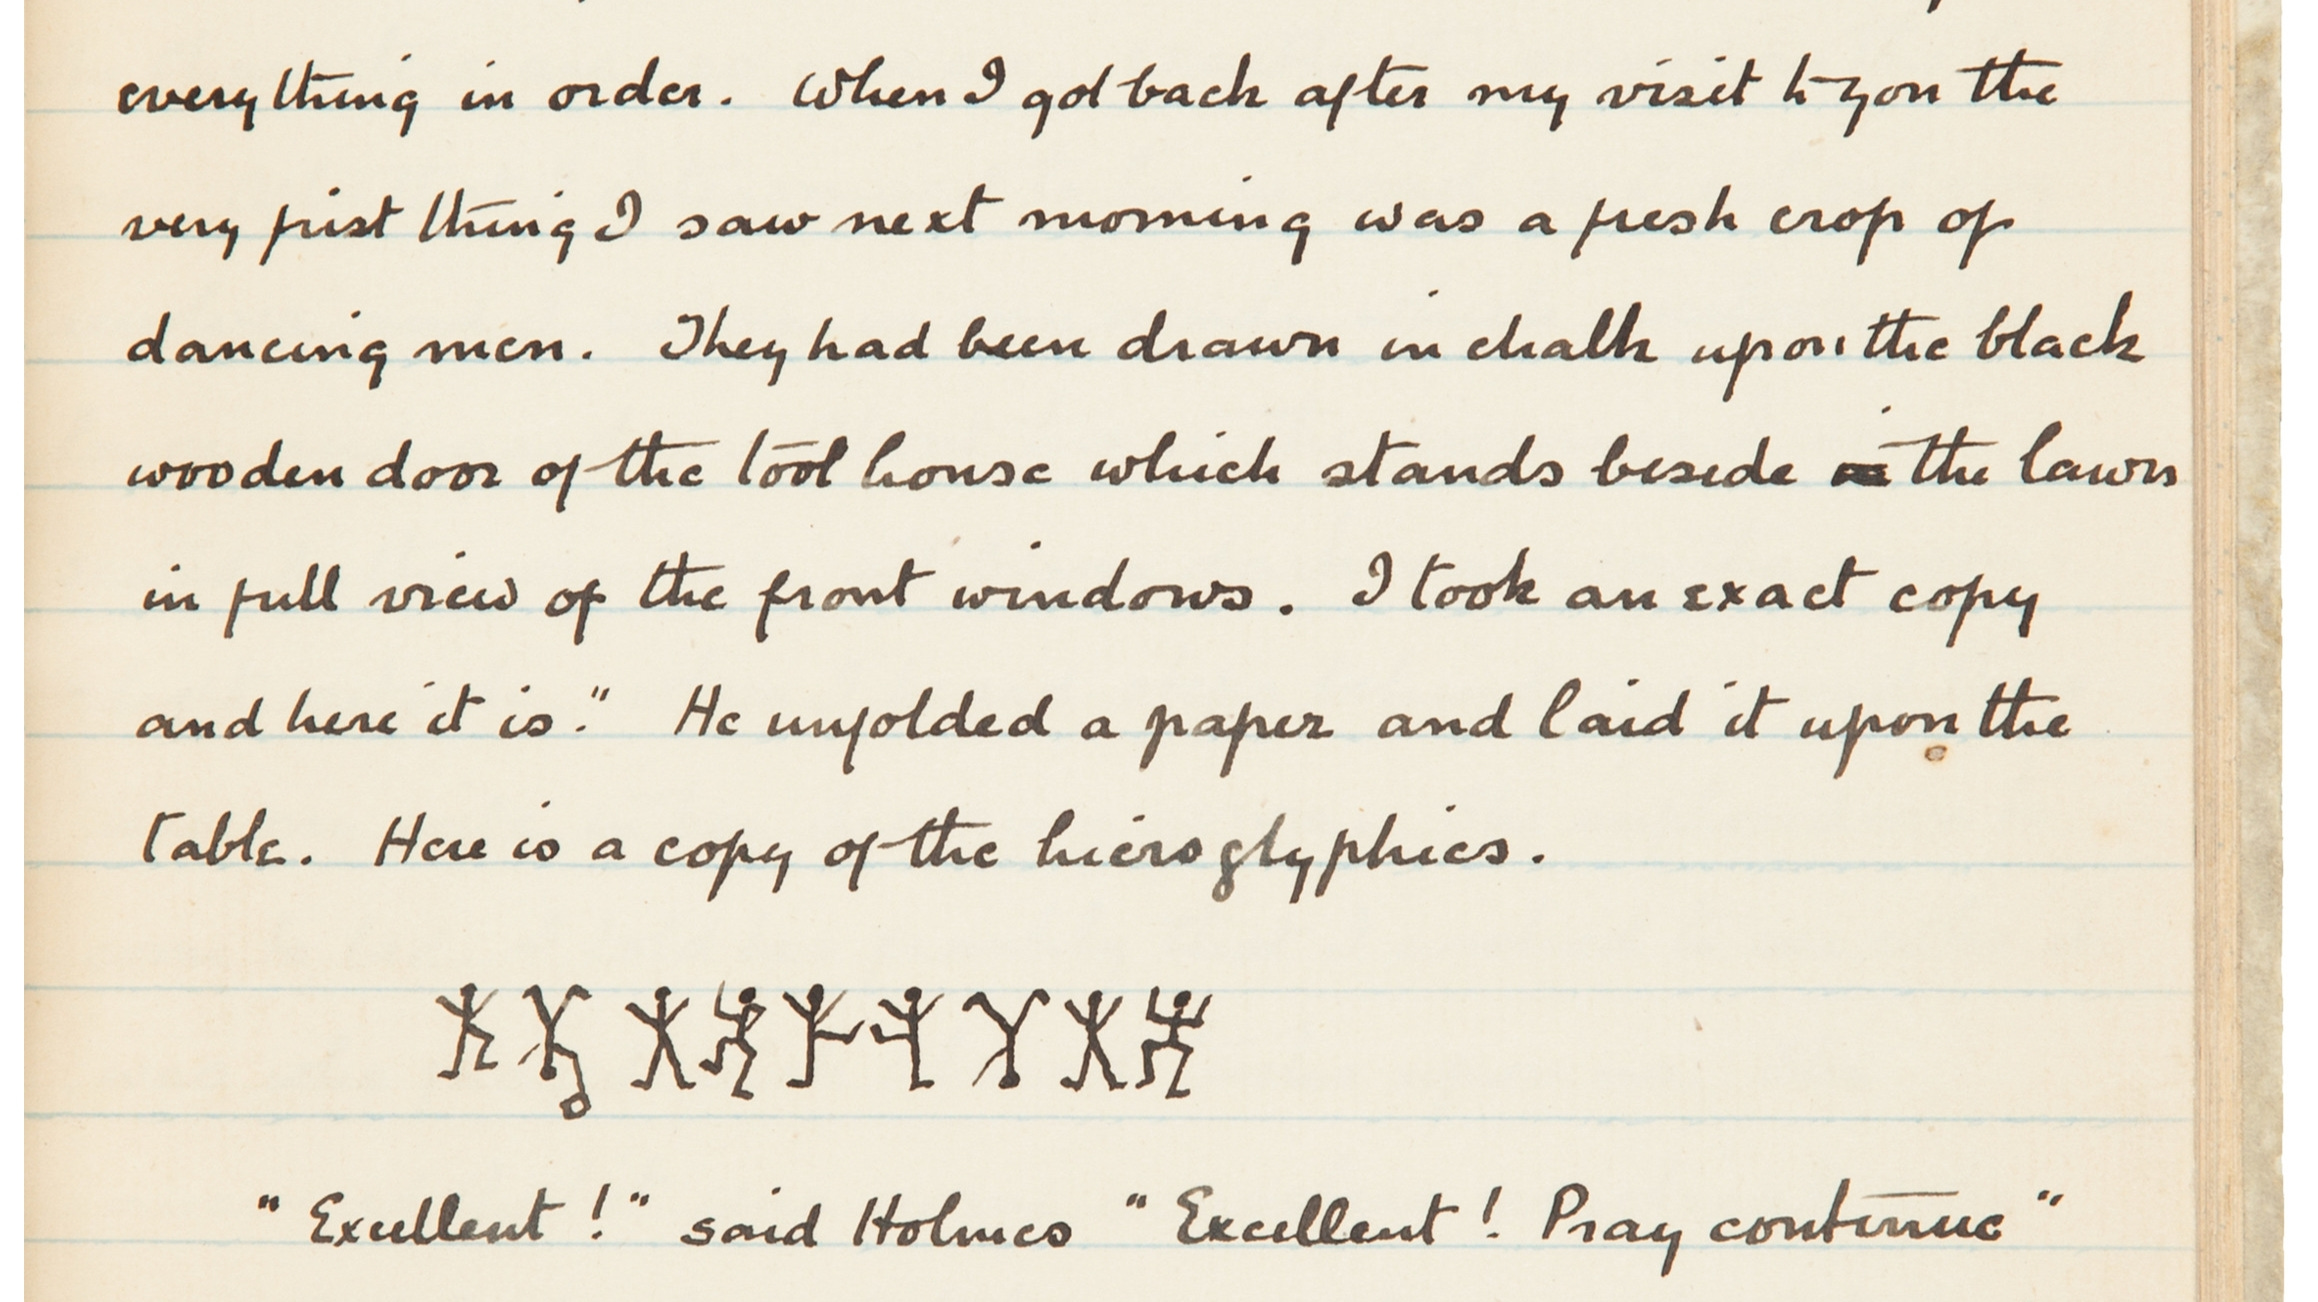 everything in order. When I got back after my visit to you the
very first thing I saw next morning was a fresh crop of
dancing men. They had been drawn in chalk upon the black
wooden door of the tool house which stands beside the lawn
in full view of the front windows. I took an exact copy
and here it is." He unfolded a paper and laid it upon the
table. Here is a copy of the hieroglyphics.
"Excellent!" said Holmes "Excellent! Pray continue"